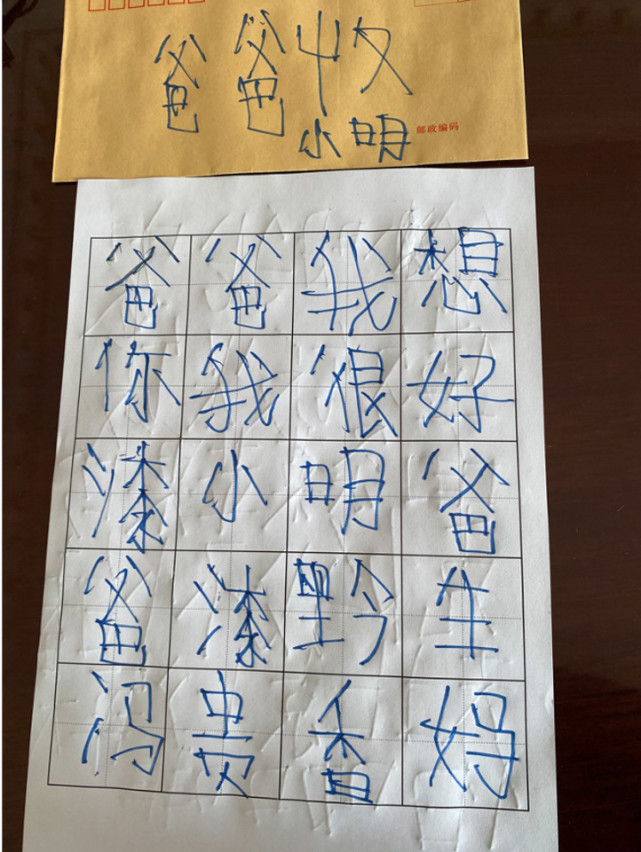 爸爸收
小明 邮政编码
爸爸我想
你我很好
漆小明爸
爸漆黔生
冯贵香妈